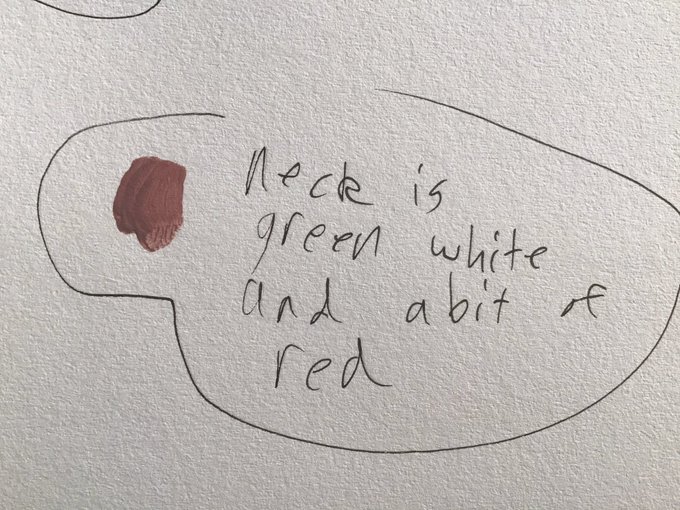 Neck is
green white
and a bit of
red